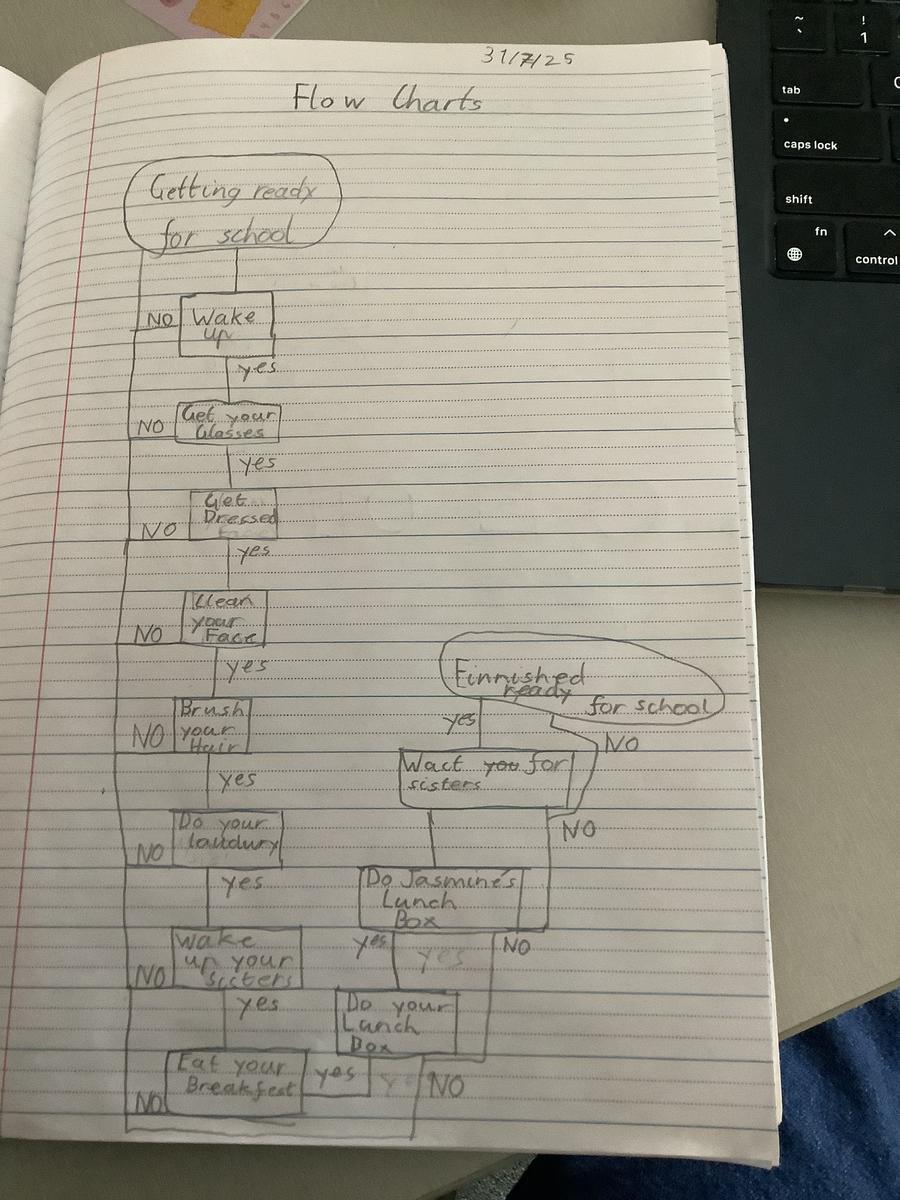 31/7/25
Flow Charts
Getting ready
for school
NO
Wake
up
yes
NO
Get your
Glasses
yes
NO
Get
Dressed
yes
NO
Clean
your
Face
yes
NO
Brush
your
Hair
yes
NO
Do your
laudury
yes
NO
Wake
up your
sisters
yes
NO
Eat your
Breakfest
yes
NO
Do your
Lunch
Box
yes
yes
NO
Do Jasmine's
Lunch
Box
NO
Wact you for
sisters
yes
NO
Finnished
ready
for school
~
`
!
1
tab
caps lock
shift
fn
^
control